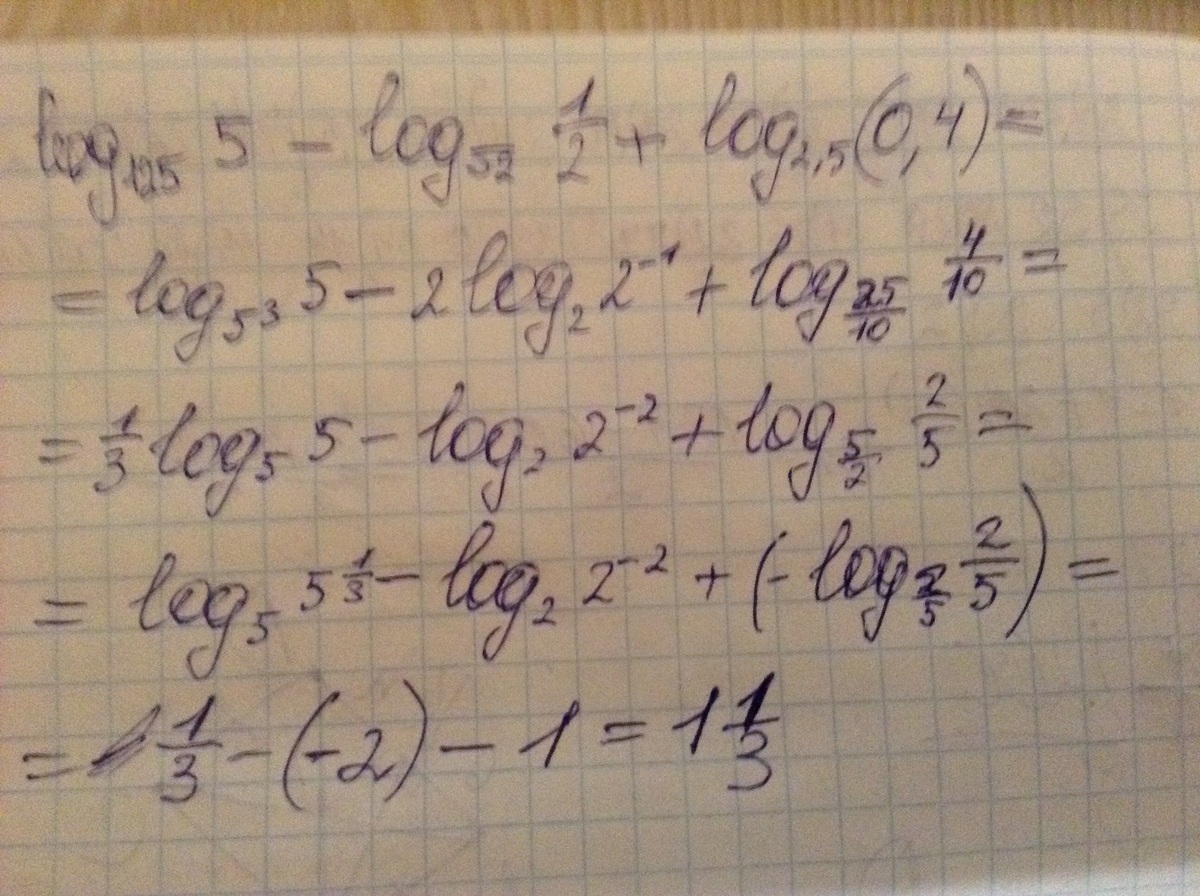 log₁₂₅ 5 − log_√2 1/2 + log₂,₅(0,4) =
= log_5³ 5 − 2log₂ 2⁻¹ + log_25/10 4/10 =
= 1/3 log₅ 5 − log₂ 2⁻² + log_5/2 2/5 =
= log₅ 5^1/3 − log₂ 2⁻² + (−log_2/5 2/5) =
= 1/3 − (−2) − 1 = 1 1/3